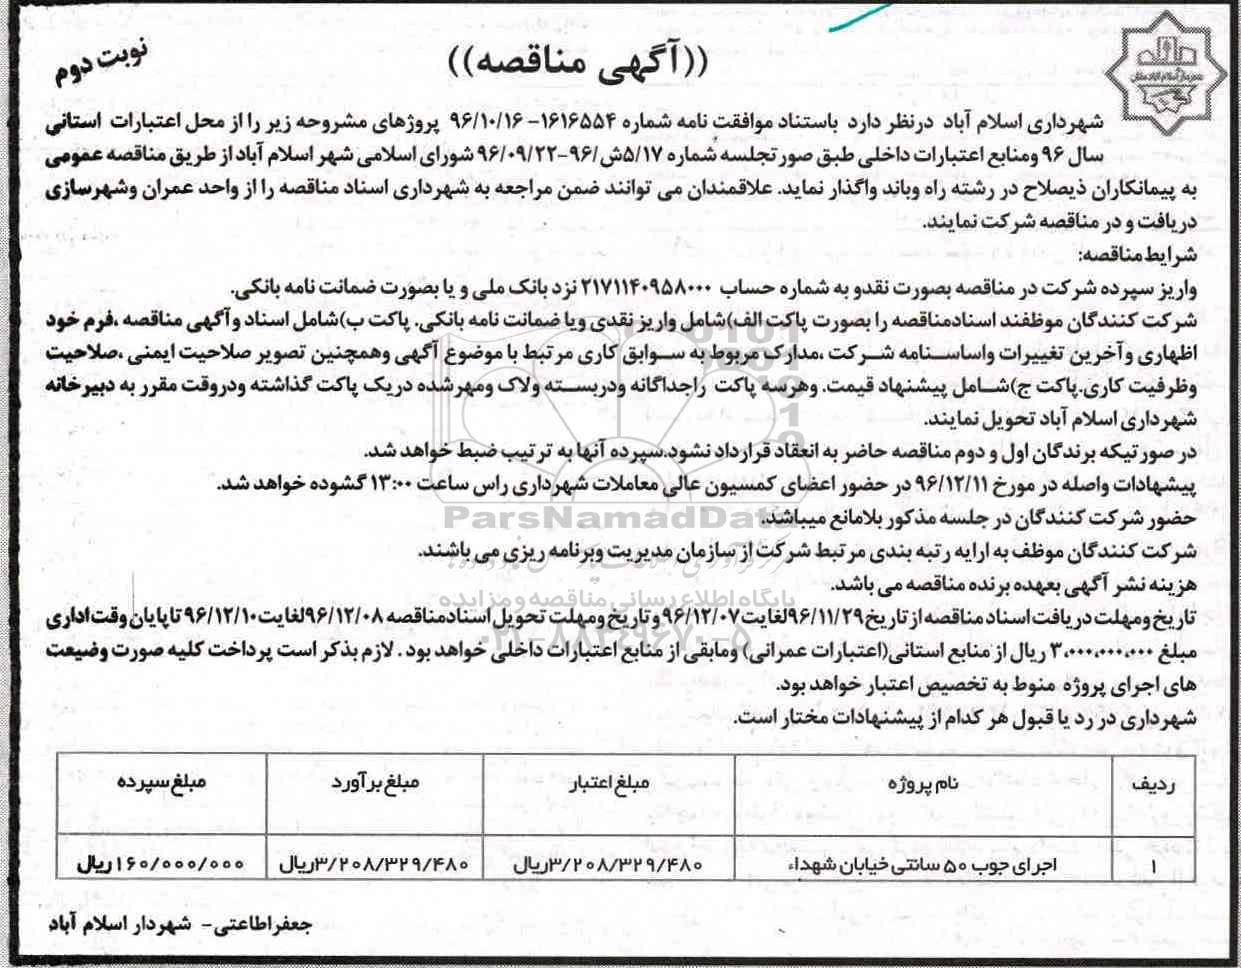 ((آگهی مناقصه))
نوبت دوم
شهرداری اسلام آباد درنظر دارد باستناد موافقت نامه شماره ۱۶۱۶۵۵۴- ۹۶/۱۰/۱۶ پروژهای مشروحه زیر را از محل اعتبارات استانی
سال ۹۶ ومنابع اعتبارات داخلی طبق صورتجلسه شماره ۵/۱۷ش/۹۶-۹۶/۰۹/۲۲ شورای اسلامی شهر اسلام آباد از طریق مناقصه عمومی
به پیمانکاران ذیصلاح در رشته راه وباند واگذار نماید. علاقمندان می توانند ضمن مراجعه به شهرداری اسناد مناقصه را از واحد عمران وشهرسازی
دریافت و در مناقصه شرکت نمایند.
شرایط مناقصه:
واریز سپرده شرکت در مناقصه بصورت نقدو به شماره حساب ۲۱۷۱۱۴۰۹۵۸۰۰۰ نزد بانک ملی و یا بصورت ضمانت نامه بانکی.
شرکت کنندگان موظفند اسنادمناقصه را بصورت پاکت الف)شامل واریز نقدی ویا ضمانت نامه بانکی. پاکت ب)شامل اسناد وآگهی مناقصه ،فرم خود
اظهاری وآخرین تغییرات واساسنامه شرکت ،مدارک مربوط به سوابق کاری مرتبط با موضوع آگهی وهمچنین تصویر صلاحیت ایمنی ،صلاحیت
وظرفیت کاری.پاکت ج)شامل پیشنهاد قیمت. وهرسه پاکت راجداگانه ودربسته ولاک ومهرشده دریک پاکت گذاشته ودروقت مقرر به دبیرخانه
شهرداری اسلام آباد تحویل نمایند.
در صورتیکه برندگان اول و دوم مناقصه حاضر به انعقاد قرارداد نشود.سپرده آنها به ترتیب ضبط خواهد شد.
پیشهادات واصله در مورخ ۹۶/۱۲/۱۱ در حضور اعضای کمسیون عالی معاملات شهرداری راس ساعت ۱۳:۰۰ گشوده خواهد شد.
حضور شرکت کنندگان در جلسه مذکور بلامانع میباشد.
ParsNamadData
شرکت کنندگان موظف به ارایه رتبه بندی مرتبط شرکت از سازمان مدیریت وبرنامه ریزی می باشند.
هزینه نشر آگهی بعهده برنده مناقصه می باشد.
پایگاه اطلاع رسانی مناقصه و مزایده
تاریخ ومهلت دریافت اسناد مناقصه از تاریخ ۹۶/۱۱/۲۹لغایت ۹۶/۱۲/۰۷ و تاریخ ومهلت تحویل اسنادمناقصه ۹۶/۱۲/۰۸لغایت ۹۶/۱۲/۱۰ تاپایان وقت اداری
۰۲۱-۸۸۳۴۹۶۷۰-۵
مبلغ ۳،۰۰۰،۰۰۰،۰۰۰ ریال از منابع استانی(اعتبارات عمرانی) ومابقی از منابع اعتبارات داخلی خواهد بود . لازم بذکر است پرداخت کلیه صورت وضیعت
های اجرای پروژه منوط به تخصیص اعتبار خواهد بود.
شهرداری در رد یا قبول هر کدام از پیشنهادات مختار است.
ردیف نام پروژه مبلغ اعتبار مبلغ برآورد مبلغ سپرده
۱ اجرای جوب ۵۰ سانتی خیابان شهداء ۳/۲۰۸/۳۲۹/۴۸۰ریال ۳/۲۰۸/۳۲۹/۴۸۰ریال ۱۶۰/۰۰۰/۰۰۰ریال
جعفراطاعتی- شهردار اسلام آباد